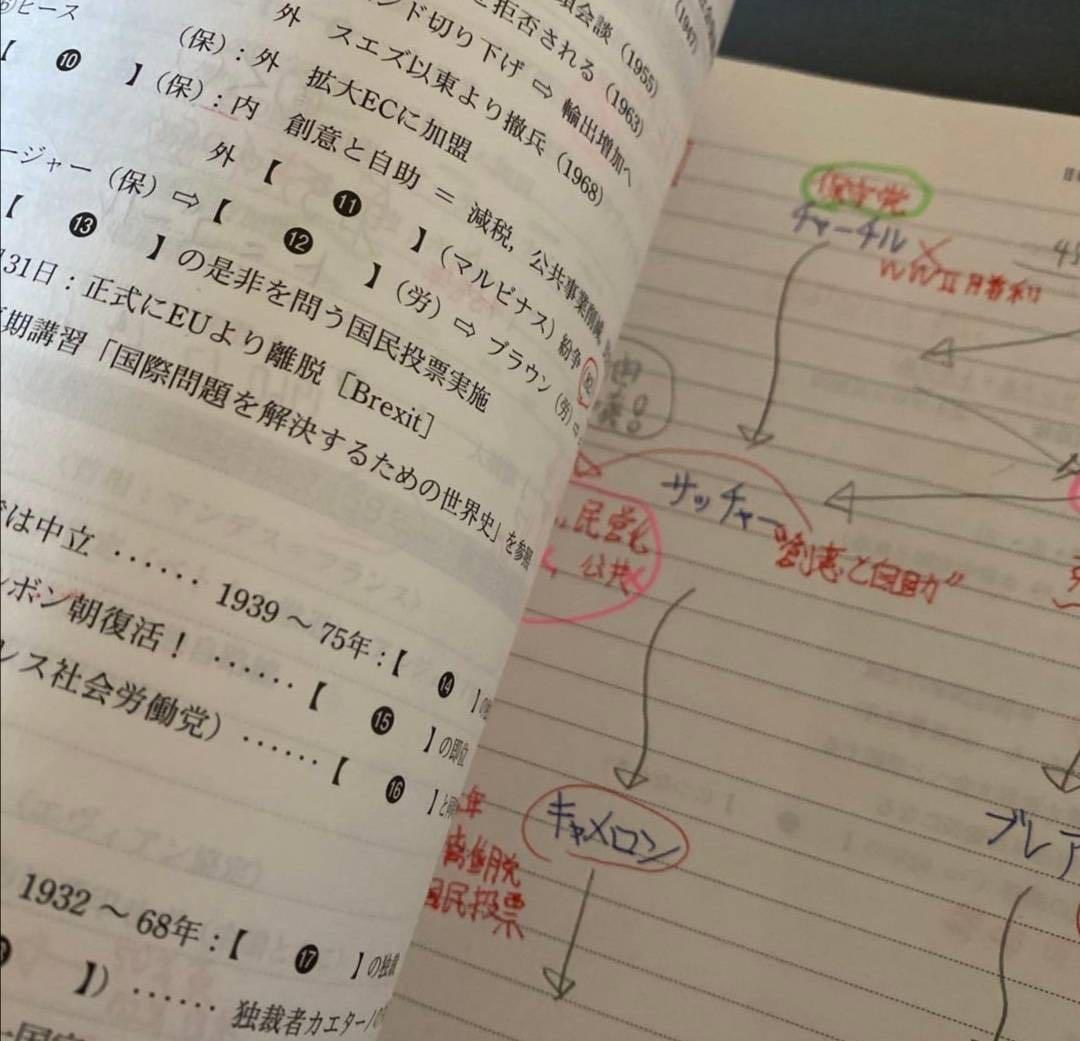 ⑥ヒース
項会談（1955）
拒否される（1963）
ンド切り下げ ⇨ 輸出増加へ
外 スエズ以東より撤兵（1968）
（保）：外 拡大ECに加盟
【 ❿ 】（保）：内 創意と自助 ＝ 減税，公共事業削減
外【 ⓫ 】（マルビナス）紛争
ージャー（保）⇨【 ⓬ 】（労）⇨ ブラウン（労）
【 ⓭ 】の是非を問う国民投票実施
31日：正式にEUより離脱［Brexit］
期講習「国際問題を解決するための世界史」を参照
では中立 …… 1939 ～ 75年：【 ⓮ 】の
ボン朝復活！ ……【 ⓯ 】の即位
レス社会労働党） ……【 ⓰ 】と
1932 ～ 68年：【 ⓱ 】の独裁
】） …… 独裁者カエターノ
保守党
チャーチル
WWⅡ勝利
サッチャー
"創意と自助"
民営化
公共
キャメロン
年
離脱
国民投票
ブレア